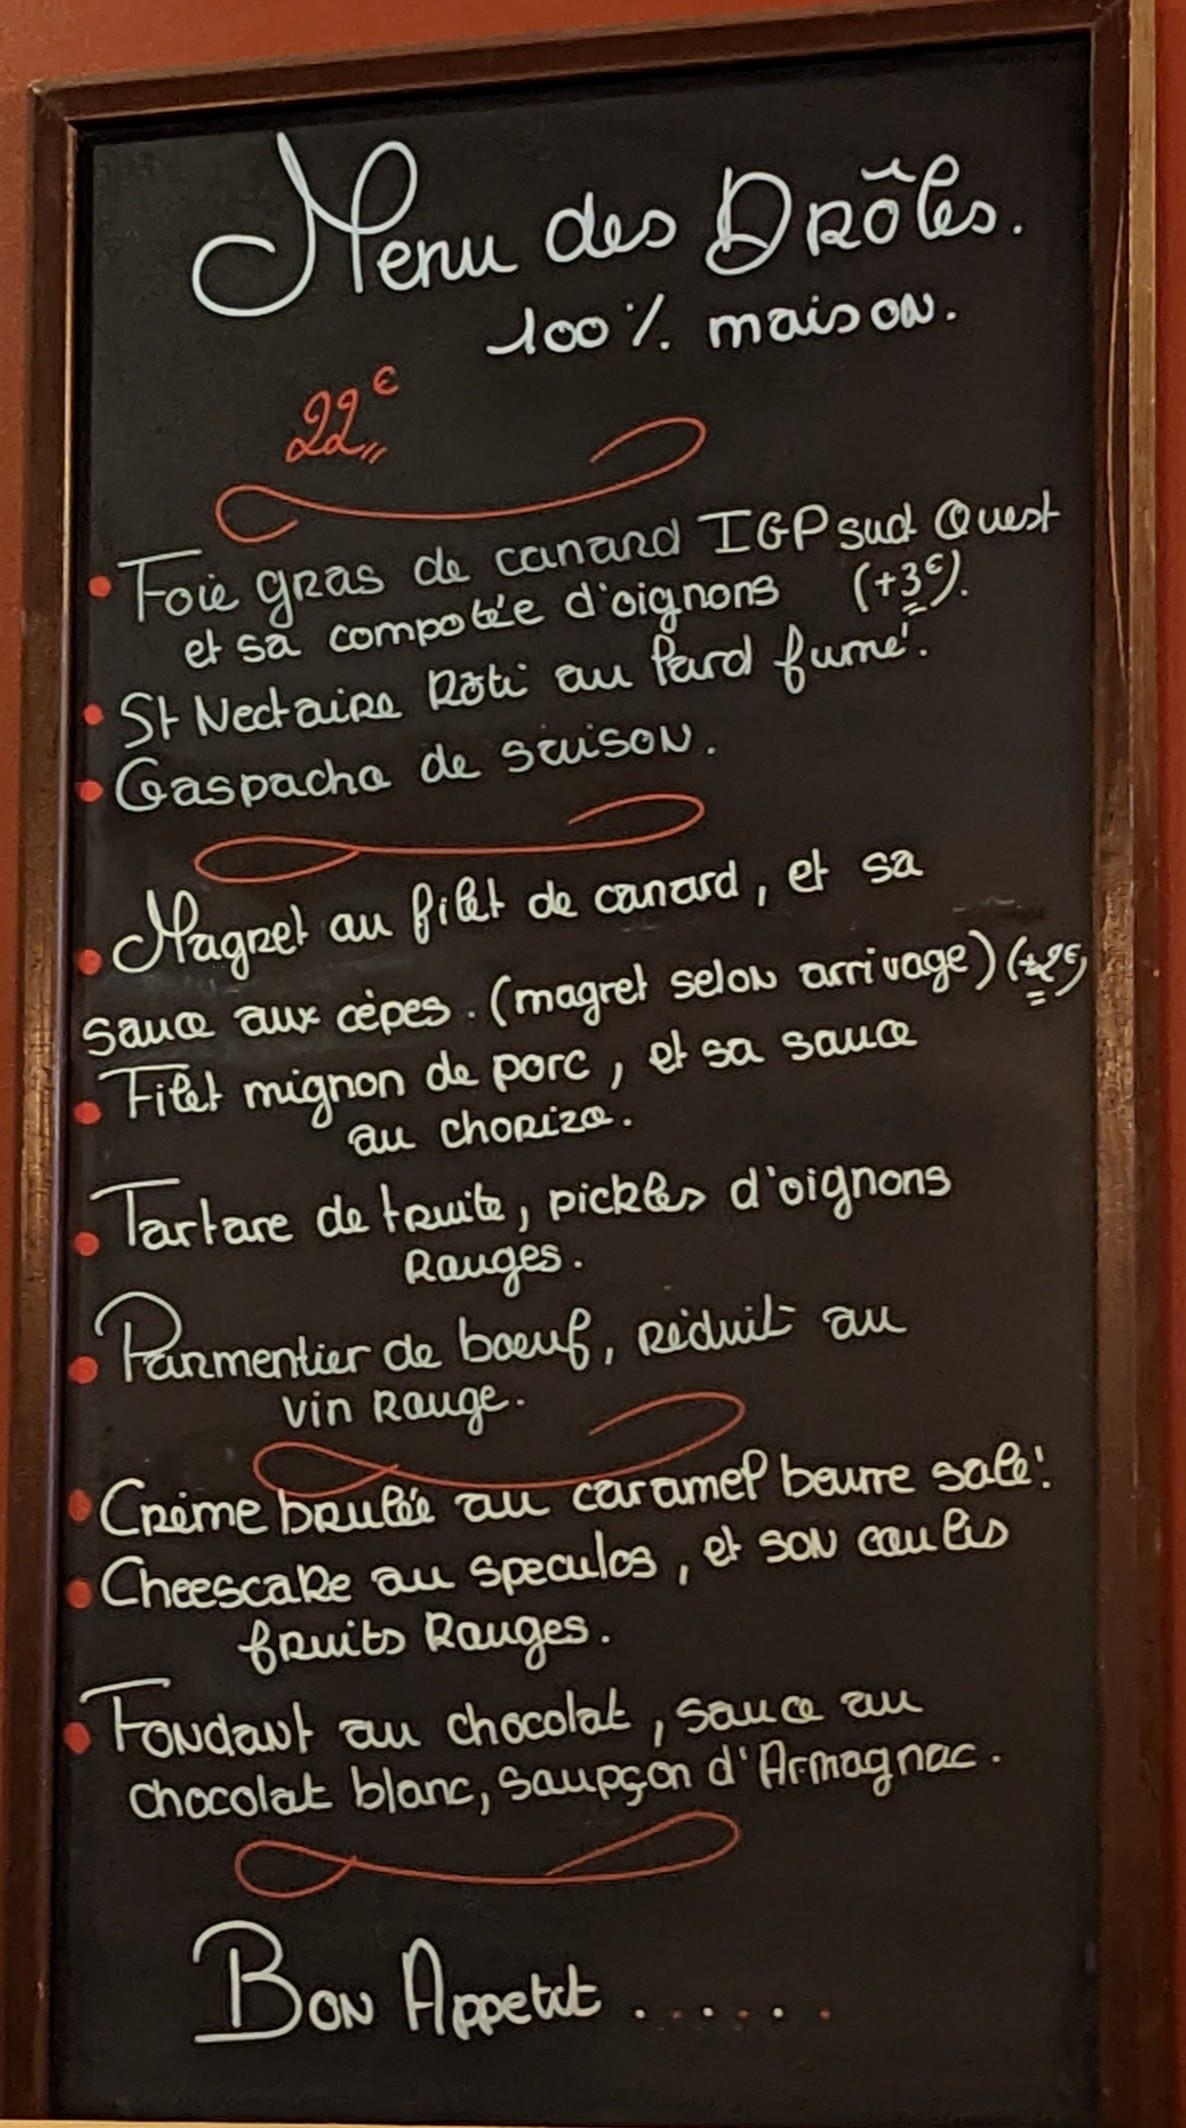 Menu des Drôles.
100% maison.
22€
• Foie gras de canard IGP sud Ouest
et sa compotée d'oignons (+3€).
• St Nectaire Rôti au lard fumé.
• Gaspacho de saison.
• Magret au filet de canard, et sa
sauce aux cèpes. (magret selon arrivage) (+2€)
• Filet mignon de porc, et sa sauce
au chorizo.
• Tartare de truite, pickles d'oignons
Rouges.
• Parmentier de boeuf, réduit au
vin Rouge.
• Crème brulée au caramel beurre salé.
• Cheescake au speculos, et son coulis
fruits Rouges.
• Fondant au chocolat, sauce au
chocolat blanc, soupçon d'Armagnac.
Bon Appetit ......